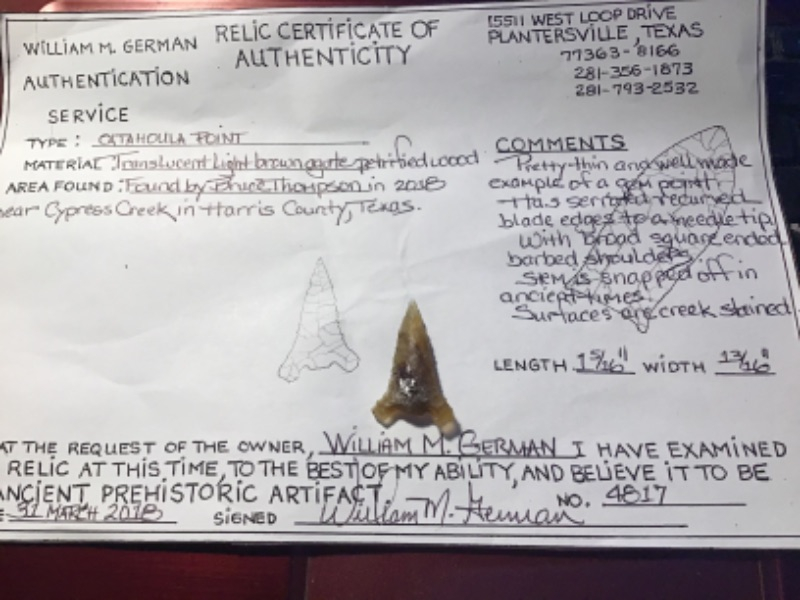 WILLIAM M. GERMAN
AUTHENTICATION
SERVICE
RELIC CERTIFICATE OF
AUTHENTICITY
15511 WEST LOOP DRIVE
PLANTERSVILLE, TEXAS
77363-8166
281-356-1873
281-793-2532
TYPE: CATAHOULA POINT
MATERIAL: Translucent Light brown agate petrified wood
AREA FOUND: Found by Bruce Thompson in 2018
near Cypress Creek in Harris County, Texas.
COMMENTS
Pretty thin and well made
example of a gem point.
Has serrated recurved
blade edges to a needle tip
With broad square ended
barbed shoulders.
Stem is snapped off in
ancient times.
Surfaces are creek stained
LENGTH 1 5/16" WIDTH 13/16"
AT THE REQUEST OF THE OWNER, WILLIAM M. GERMAN I HAVE EXAMINED
RELIC AT THIS TIME, TO THE BEST OF MY ABILITY, AND BELIEVE IT TO BE
ANCIENT PREHISTORIC ARTIFACT.
NO. 4817
31 MARCH 2018 SIGNED William M. German